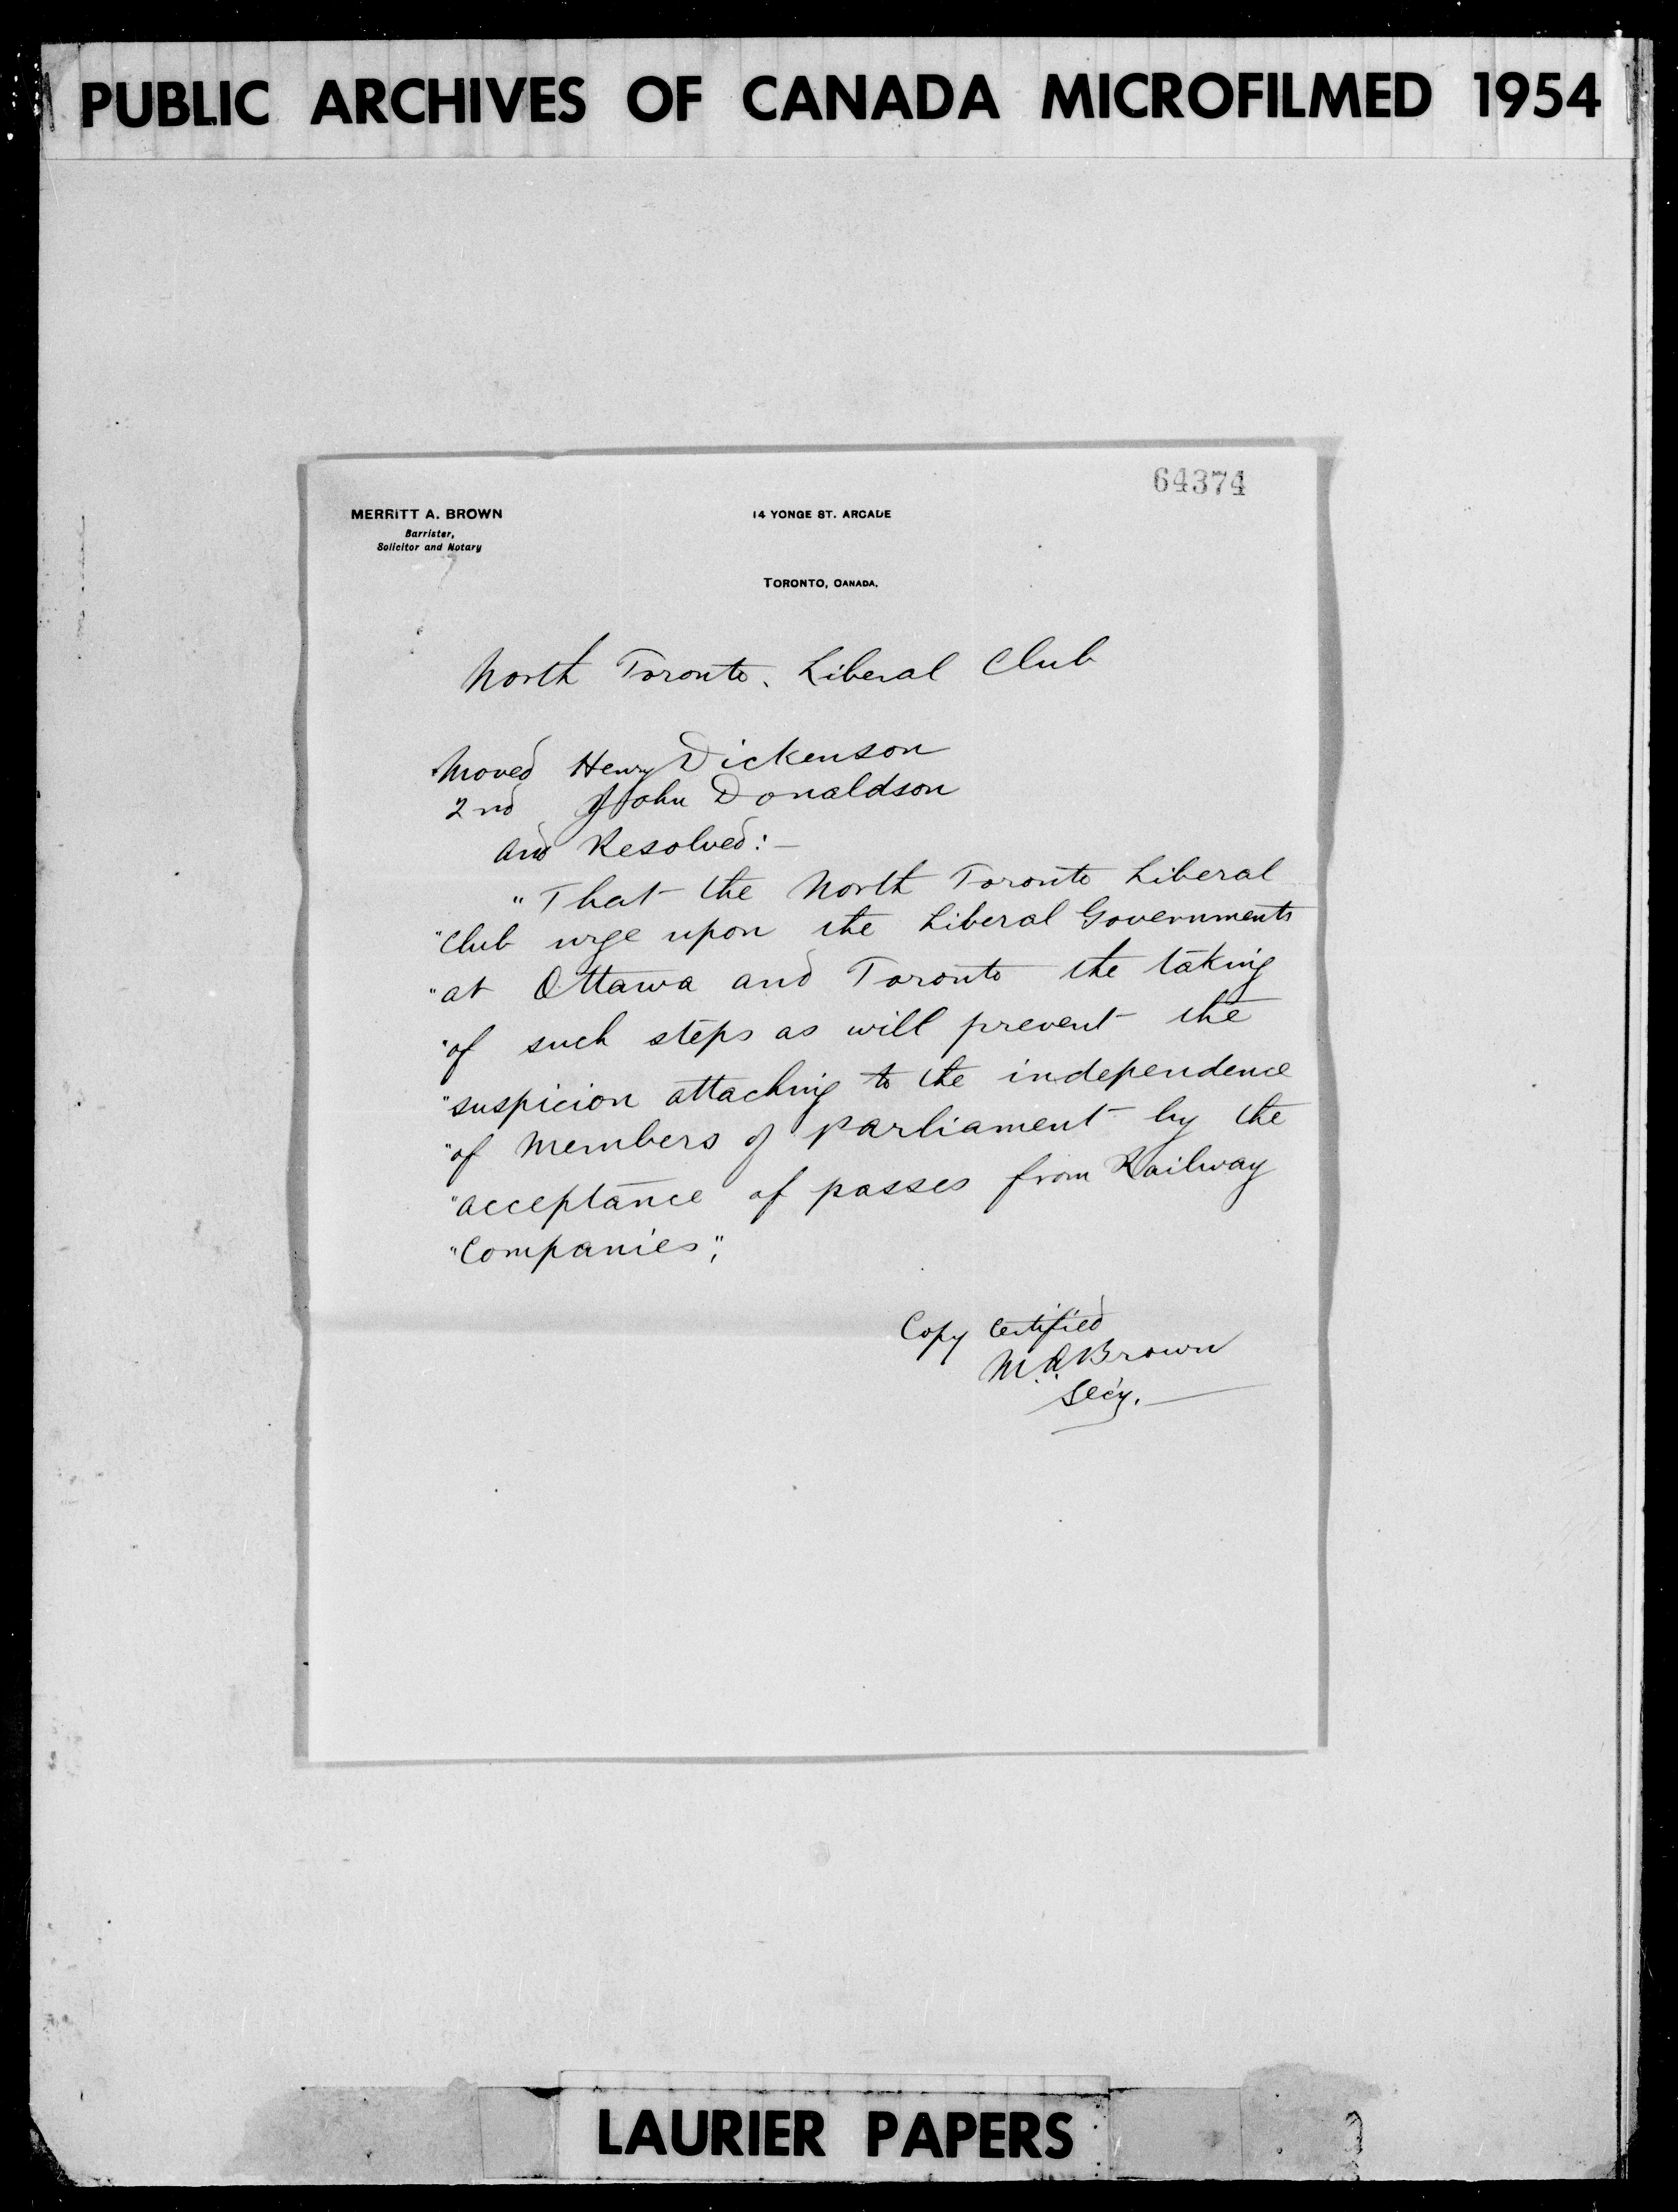 PUBLIC ARCHIVES OF CANADA MICROFILMED 1954
64374
MERRITT A. BROWN
Barrister,
Solicitor and Notary
14 YONGE ST. ARCADE
TORONTO, CANADA.
North Toronto. Liberal Club
Moved Henry Dickenson
2nd John Donaldson
and Resolved:-
"That the North Toronto Liberal
"Club urge upon the Liberal Governments
"at Ottawa and Toronto the taking
"of such steps as will prevent the
"suspicion attaching to the independence
"of Members of Parliament by the
"acceptance of passes from Railway
"Companies",
Copy Certified
M.A. Brown
Sec'y.
LAURIER PAPERS